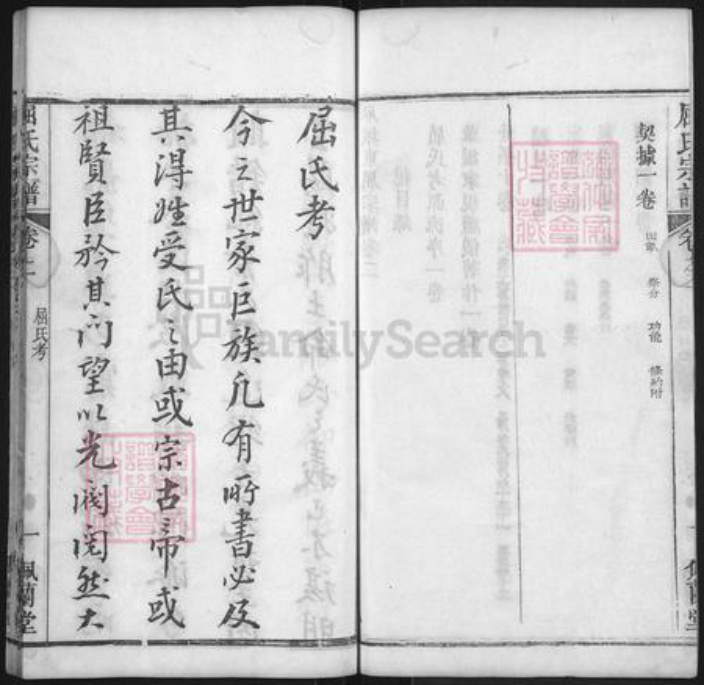 契據一卷 田單 祭分 功能 條約附
屈氏宗譜 卷之一
佩蘭堂
屈氏考
今之世家巨族凡有所書必及
其得姓受氏之由或宗古帝或
祖賢臣矜其門望以光閥閱然大
屈氏宗譜 卷之一 屈氏考 一 佩蘭堂
FamilySearch